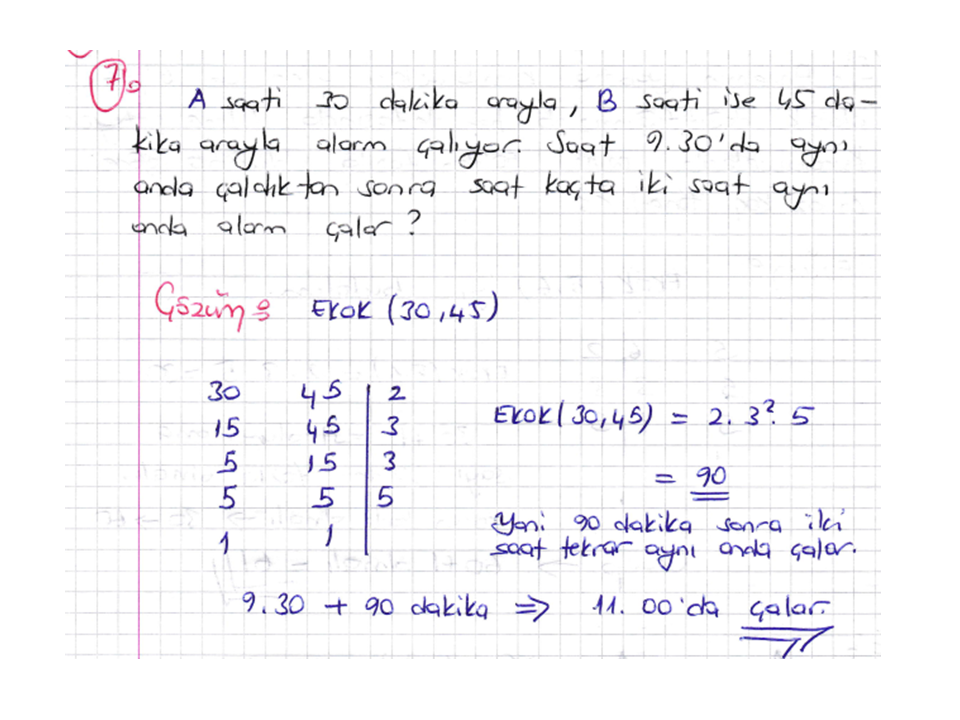 7.
A saati 30 dakika arayla, B saati ise 45 da-
kika arayla alarm çalıyor. Saat 9.30'da aynı
anda çaldıktan sonra saat kaçta iki saat aynı
anda alarm çalar?
Çözüm: EKOK (30,45)
30 45 | 2
15 45 | 3
5 15 | 3
5 5 | 5
1 1
EKOK(30,45) = 2. 3². 5
= 90
Yani 90 dakika sonra iki
saat tekrar aynı anda çalar.
9.30 + 90 dakika => 11.00'da çalar.